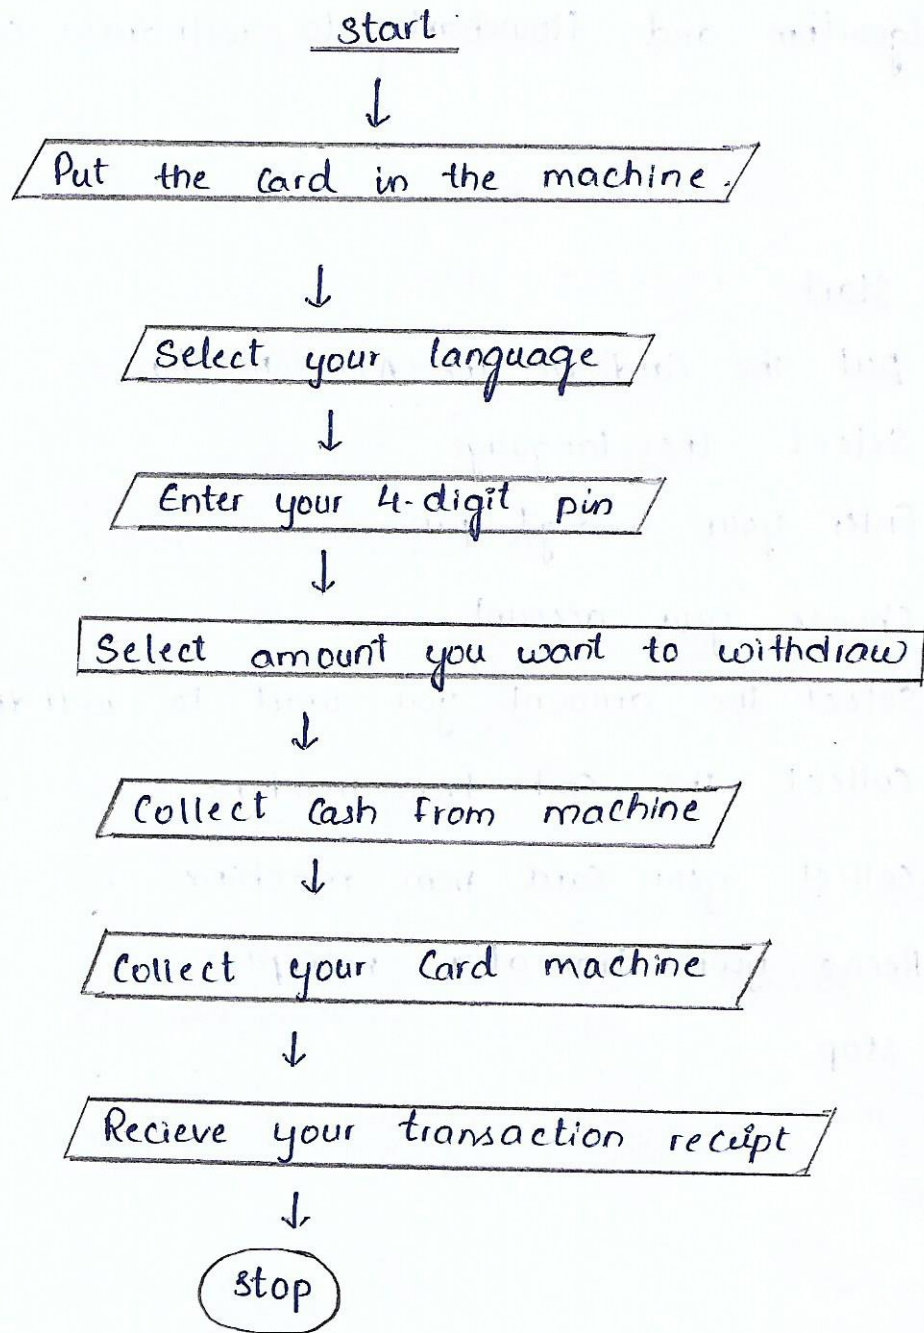 start
Put the Card in the machine.
Select your language
Enter your 4-digit pin
Select amount you want to withdraw
Collect Cash from machine
Collect your Card machine
Recieve your transaction receipt
stop